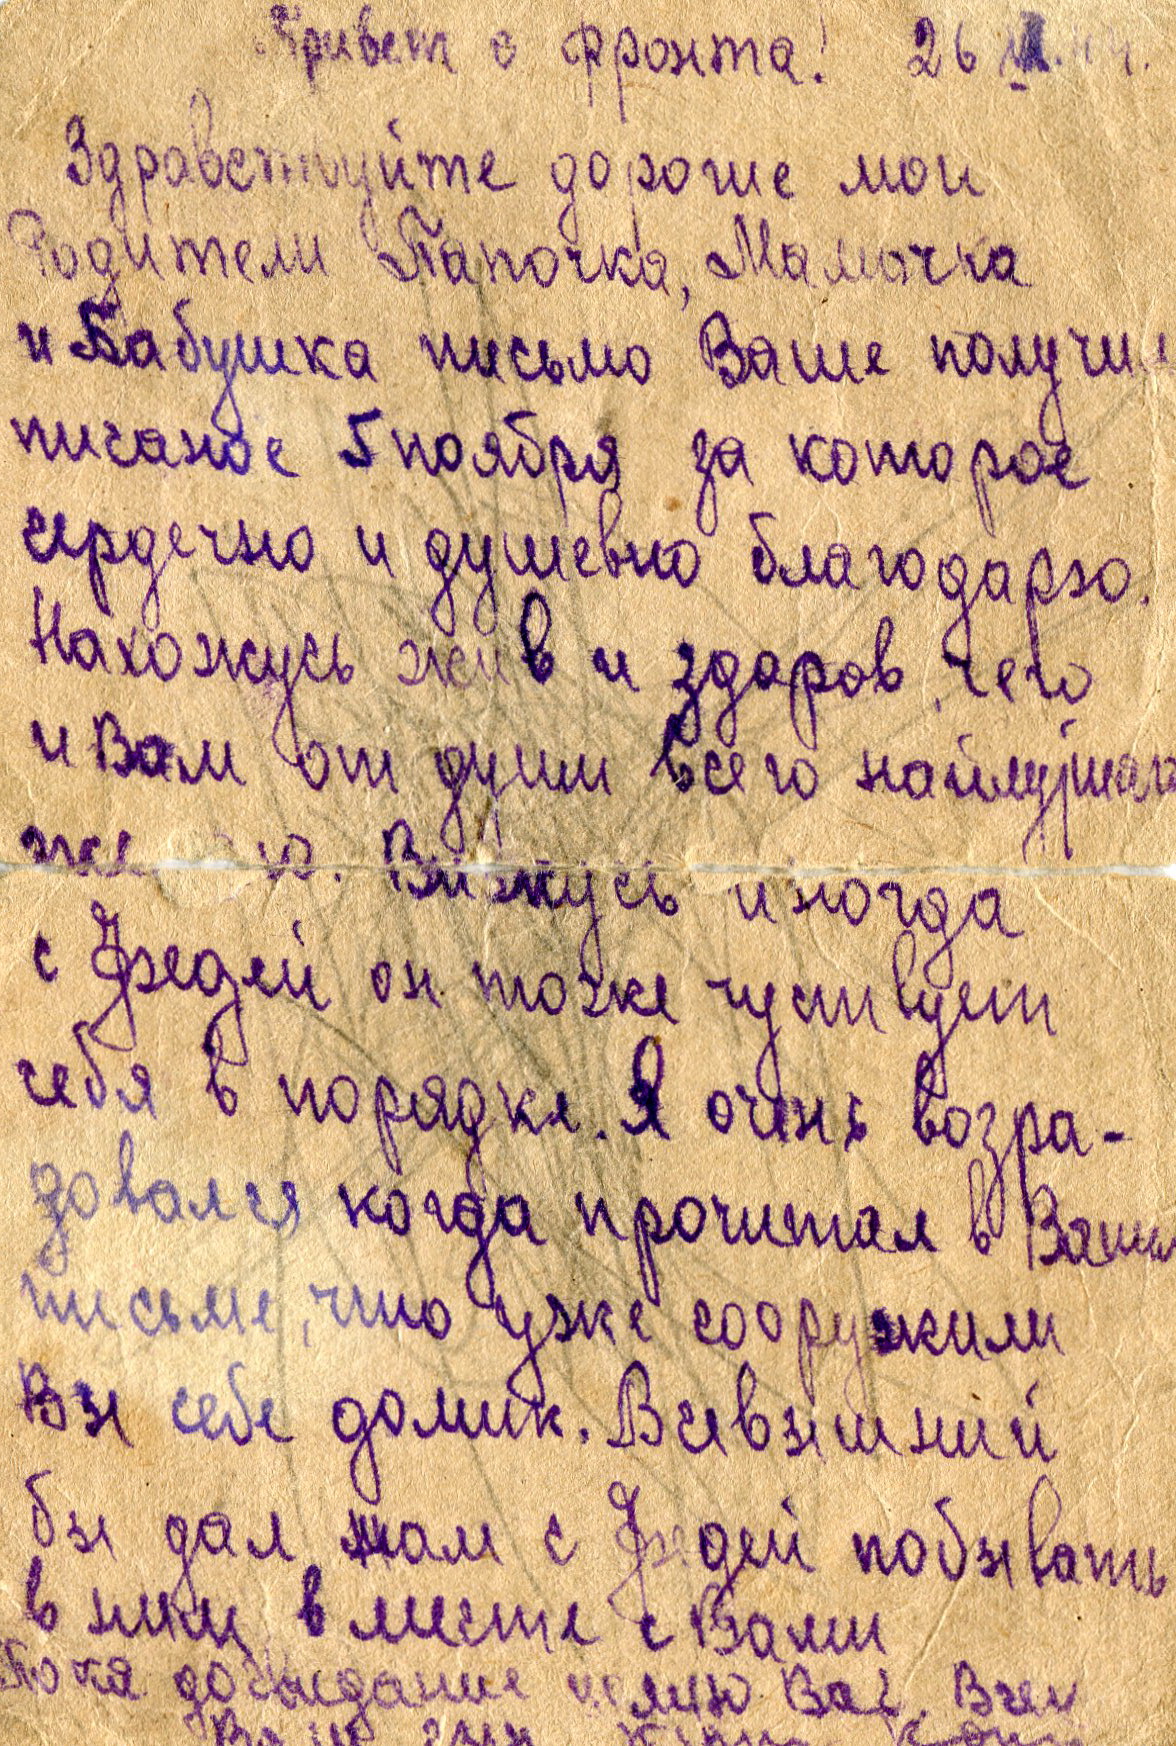 Привет с фронта! 26
Здравствуйте дорогие мои
Родители Папочка, Мамочка
и Бабушка письмо Ваше получил
писаное 5 ноября за которое
сердечно и душевно благодарю.
Нахожусь жив и здоров, чего
и Вам от души всего найлучшего
же ю. Вижусь иногда
с Федей он тоже чуствует
себя в порядке. Я очень возра-
довался когда прочитал в Вашем
письме, что уже сооружили
Вы себе домик. Всевышний
бы дал нам с Федей побывать
в нём вместе с Вами
Пока досвидание целую Вас Всех
Ваш сын